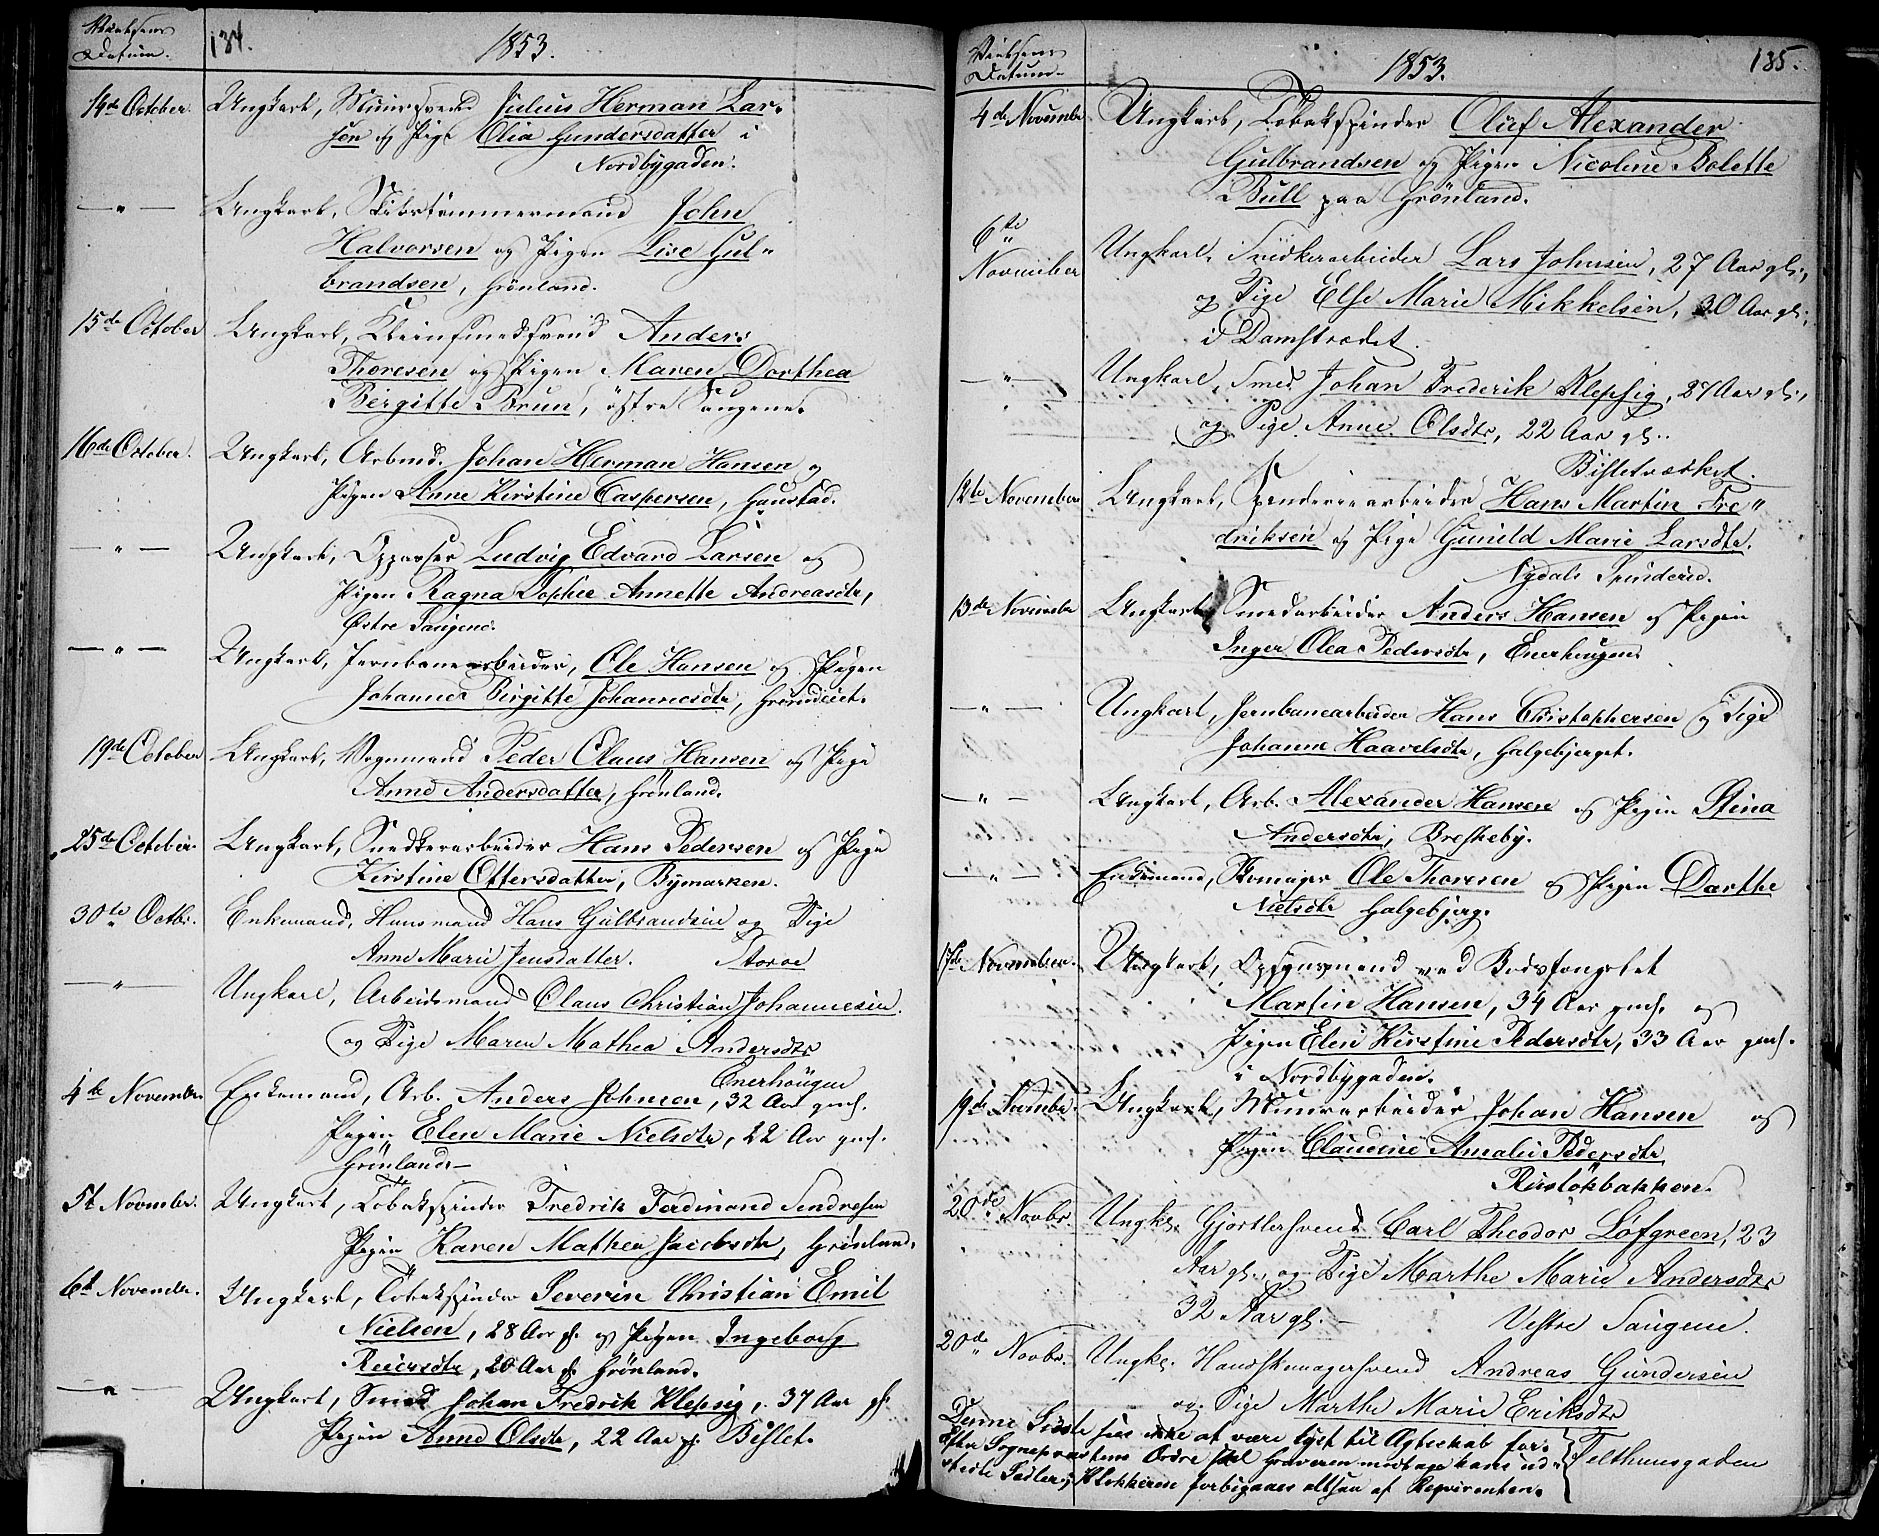 Vielsens
Datum.
134.
1853.
14de October. Ungkarl, Muursvend Julius Herman Lar-
sen og Pige Olia Gundersdatter i
Nordbygaden.
— " — Ungkarl, Skibstømmermand John
Halvorsen og Pigen Lise Gul-
brandsen, Grønland.
15de October Ungkarl, Kleinsmedsvend Anders
Thoresen og Pigen Maren Dorthea
Birgitte Brun, østre Saugene.
16de October. Ungkarl, Arbmd. Johan Herman Hansen og
Pigen Anne Kirstine Caspersen, Haustad.
— " — Ungkarl, Oppasser Ludvig Edvard Larsen og
Pigen Ragna Sophie Annette Andreasdtr,
Østre Saugene.
— " — Ungkarl, Jernbanearbeider, Ole Hansen og Pigen
Johanne Birgitte Johannesdtr,
19de October Ungkarl, Vognmand Peder Claus Hansen og Pige
Anne Andersdatter, Grønland.
25de October. Ungkarl, Snedkerarbeider Hans Pedersen og Pige
Kirstine Offersdatter, Bymarken.
30te Octbr. Enkemand, Huusmand Hans Gulbrandsen og Pige
Anne Marie Jensdatter. Storoe
— " — Ungkarl, Arbeidsmand Claus Christian Johannesen
og Pige Maren Mathea Andersdtr
Enerhougen
4de November Enkemand, Arb. Anders Johnsen, 32 Aar gml.
Pigen Elen Marie Nielsdtr, 22 Aar gml.
Grønland —
5t November. Ungkarl, Tobakspinder Fredrik Ferdinand
Pigen Karen Mathea Jacobsdtr, Grønland.
6t November. Ungkarl, Tobakspinder Severin Christian Emil
Nielsen, 28 Aar gl. og Pigen Ingeborg
Reiersdtr, 20 Aar gl. Grønland.
— " — Ungkarl, Smed Johan Fredrik Klepsig, 37 Aar gl.
Pigen Anne Olsdtr, 22 Aar gl. Bislet.
Vielsens
Datum.
1853.
135.
4de November Ungkarl, Tobakspinder Oluf Alexander
Gulbrandsen og Pigen Nicoline Bolette
Bull paa Grønland.
6te November Ungkarl, Snedkerarbeider Lars Johnsen, 27 Aar gl.,
og Pige Else Marie Mikkelsen, 30 Aar gl.,
i Damstrædet.
— " — Ungkarl, Smed Johan Frederik Klepsig, 27 Aar gl.,
og Pige Anne Olsdtr, 22 Aar gl.
Bisletværket.
12te November Ungkarl, Spinderiearbeider Hans Martin Fre-
driksen og Pige Gunild Marie Larsdtr.
Nydals Spinderie.
13de November Ungkarl, Smedarbeider Anders Hansen og Pigen
Inger Olea Pedersdtr, Enerhaugen
— " — Ungkarl, Jernbanearbeider Hans Christophersen og Pige
Johanne Haavelsdtr, Galgebjerget.
— " — Ungkarl, Arb. Alexander Hansen og Pigen Stina
Andersdtr, Briskeby.
— " — Enkemand, Skomager Ole Thoresen og Pigen Dorthe
Nielsdtr Galgebjerg.
17de November. Ungkarl, Opsynsmand ved Bodsfængslet
Martin Hansen, 34 Aar gml. og
Pigen Elen Kirstine Pedersdtr, 33 Aar gml.
i Nordbygaden.
19de November. Ungkarl, Muurarbeider Johan Hansen og
Pigen Claudine Amalie Pedersdtr
Ruseløkbakken.
20de Novbr. Ungk. Gjørtlersvend Carl Theodor Løfgreen, 23
Aar gl., og Pige Marthe Marie Andersdtr
32 Aar gl. — Vestre Saugene.
20de Novbr. Ungk. Handskemagersvend Andreas Gundersen
og Pige Marthe Marie Eriksdtr
Telthuusgaden
Denne Sidste sees ikke at være lyst til Ægteskab for-
Efter Sognepræstens Ordre skal Graveren modtage hans ud-
stedte Sedler; Klokkeren forbigaaes altsaa af Reqvirenten.